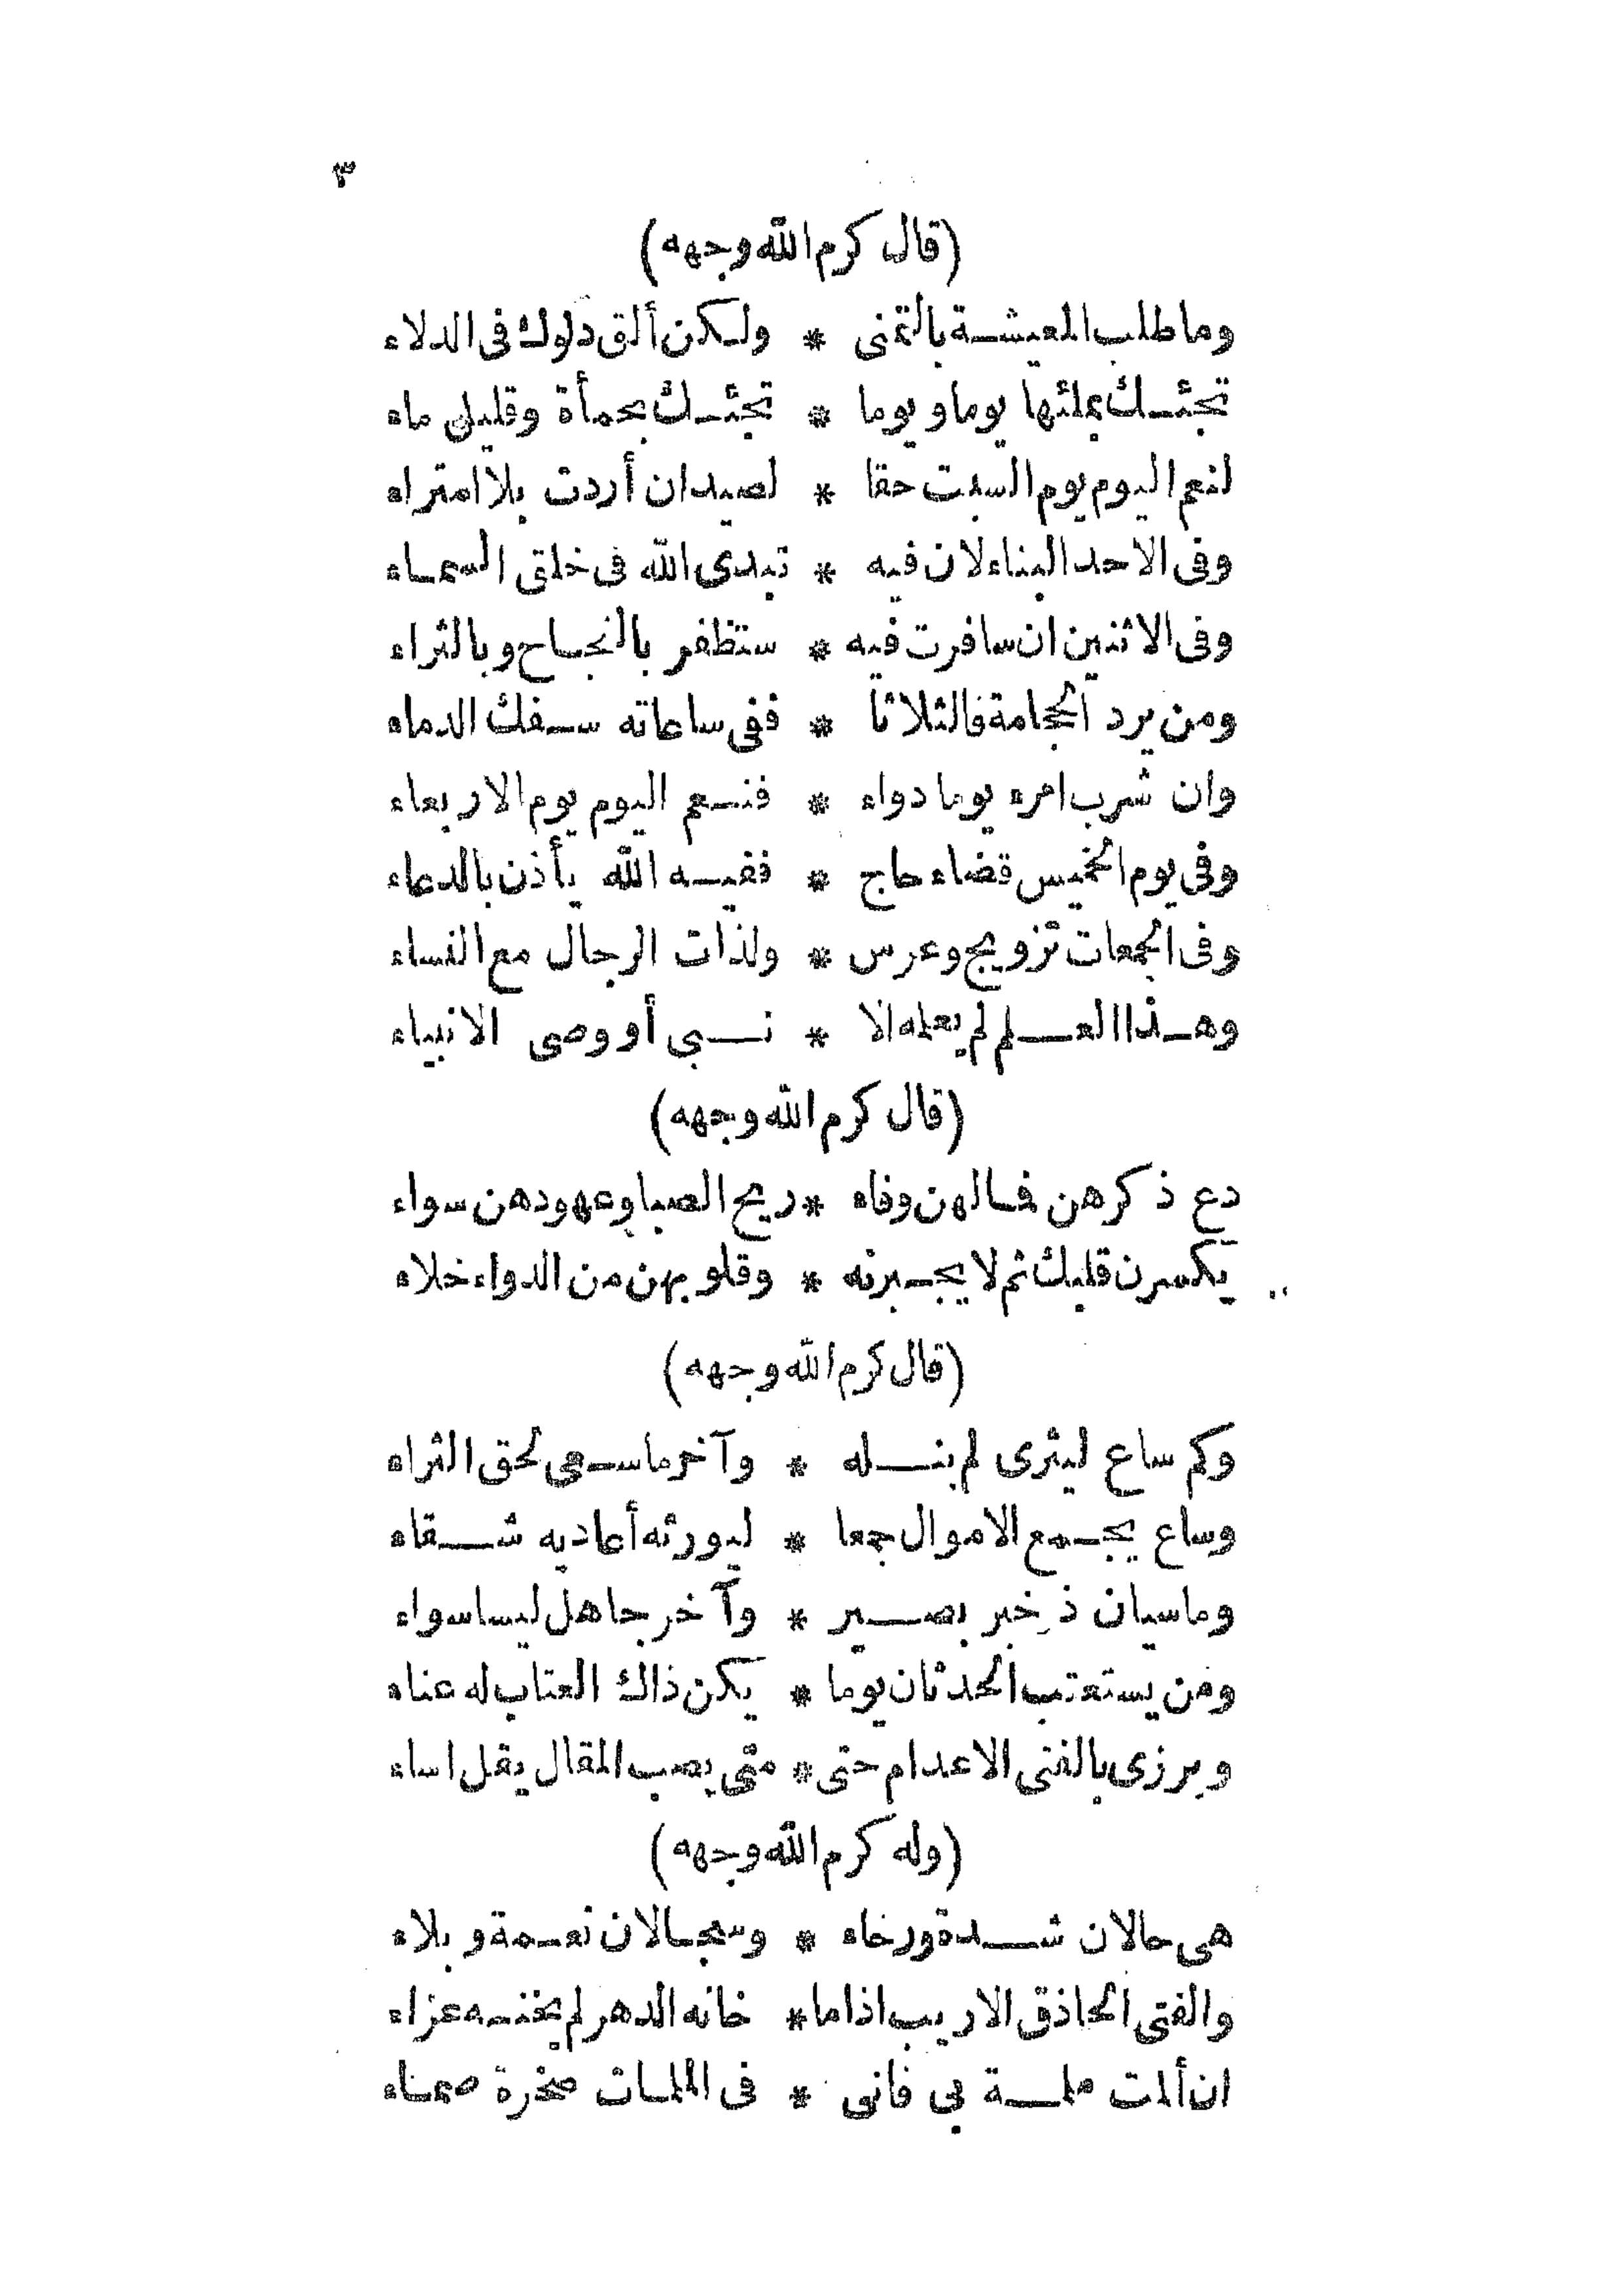 ٣
(قال كرم الله وجهه)
وما طلب المعيشة بالتمنى * ولكن ألق دلوك فى الدلاء
تجئك بملئها يوما و يوما * تجئك بحمأة وقليل ماء
لنعم اليوم يوم السبت حقا * لصيد ان أردت بلا امتراء
وفى الاحد البناء لان فيه * تبدى الله فى خلق السماء
وفى الاثنين ان سافرت فيه * ستظفر بالنجاح وبالثراء
ومن يرد الحجامة فالثلاثا * ففى ساعاته سفك الدماء
وان شرب امرء يوما دواء * فنعم اليوم يوم الاربعاء
وفى يوم الخميس قضاء حاج * ففيه الله يأذن بالدعاء
وفى الجمعات تزويج وعرس * ولذات الرجال مع النساء
وهذا العلم لم يعلمه الا * نبي أو وصى الانبياء
(قال كرم الله وجهه)
دع ذكرهن فمالهن وفاء * ريح الصبا وعهودهن سواء
يكسرن قلبك ثم لا يجبرنه * وقلوبهن من الدواء خلاء
(قال كرم الله وجهه)
وكم ساع ليثرى لم ينله * وآخر ما سعى لحق الثراء
وساع يجمع الاموال جمعا * ليورثه أعاديه شقاء
وما سيان ذ خبر بصير * وآخر جاهل ليسا سواء
ومن يستعتب الحدثان يوما * يكن ذاك العتاب له عناء
ويرزى بالفتى الاعدام حتى * متى يصب المقال يقل اساء
(وله كرم الله وجهه)
هى حالان شدة ورخاء * وسجالان نعمة و بلاء
والفتى الحاذق الاريب اذا ما * خانه الدهر لم يخنه عزاء
ان ألمت ملمة بي فانى * فى الملمات صخرة صماء